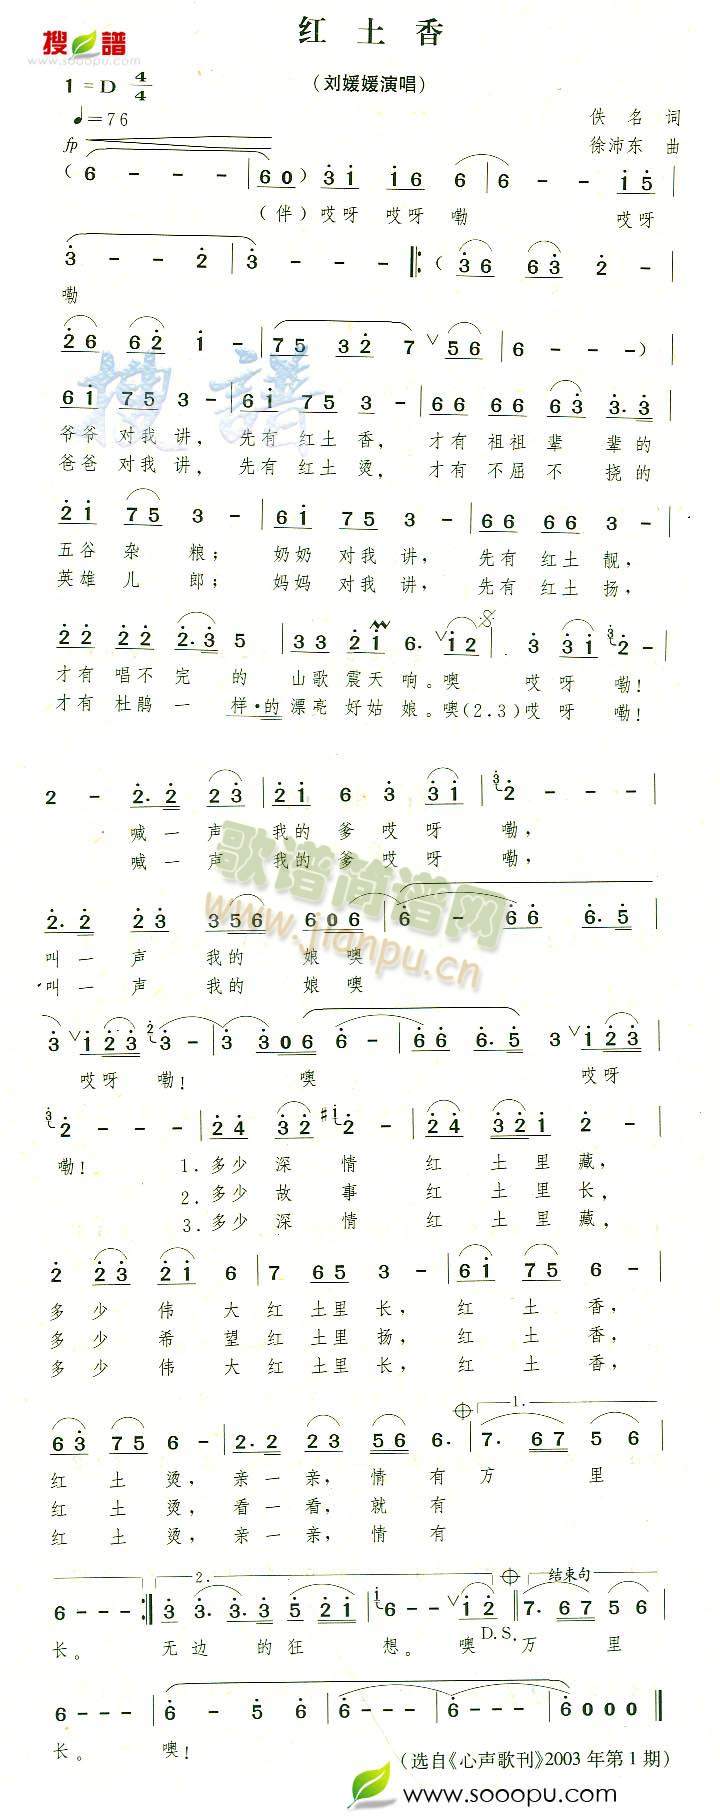 搜谱
www.sooopu.com
红 土 香
(刘媛媛演唱)
1 = D 4/4
♩= 76
佚 名 词
徐沛东 曲
fp
( 6 - - - 6 0 ) 3 i i 6 6 6 - - i 5
(伴) 哎呀 哎呀 嘞 哎呀
3 - - 2 3 - - - ( 3 6 6 3 2 -
嘞
2 6 6 2 i - 7 5 3 2 7 V 5 6 6 - - - )
6 i 7 5 3 - 6 i 7 5 3 - 6 6 6 6 6 3 3. 3
爷爷 对我 讲, 先有 红土 香, 才有 祖祖 辈 辈的
爸爸 对我 讲, 先有 红土 烫, 才有 不屈 不 挠的
2 i 7 5 3 - 6 i 7 5 3 - 6 6 6 6 3 -
五谷 杂 粮; 奶奶 对我 讲, 先有 红土 靓,
英雄 儿 郎; 妈妈 对我 讲, 先有 红土 扬,
2 2 2 2 2. 3 5 3 3 2 i 6. V i 2 3 3 i 2 -
才有 唱不 完 的 山歌 震天 响。噢 哎呀 嘞!
才有 杜鹃 一 样·的 漂亮 好姑 娘。噢(2.3)哎呀 嘞!
2 - 2. 2 2 3 2 i 6 3 3 i 2 - - -
喊一 声 我的 爹 哎呀 嘞,
喊一 声 我的 爹 哎呀 嘞,
歌谱简谱网
www.jianpu.cn
2. 2 2 3 3 5 6 6 0 6 6 - 6 6 6. 5
叫一 声 我的 娘 噢
叫一 声 我的 娘 噢
3 V i 2 3 3 - 3 3 0 6 6 - 6 6 6. 5 3 V i 2 3
哎呀 嘞! 噢 哎呀
2 - - - 2 4 3 2 #i 2 - 2 4 3 2 i 2 -
嘞! 1.多少 深 情 红 土里 藏,
2.多少 故 事 红 土里 长,
3.多少 深 情 红 土里 藏,
2 2 3 2 i 6 7 6 5 3 - 6 i 7 5 6 -
多 少 伟 大 红 土里 长, 红 土 香,
多 少 希 望 红 土里 扬, 红 土 香,
多 少 伟 大 红 土里 长, 红 土 香,
1.
6 3 7 5 6 - 2. 2 2 3 5 6 6. 7. 6 7 5 6
红 土 烫, 亲 一 亲, 情 有 万 里
红 土 烫, 看 一 看, 就 有
红 土 烫, 亲 一 亲, 情 有
2. 结束句
6 - - - 3 3 3. 3 5 2 i 6 - - V i 2 7. 6 7 5 6
长。 无边 的狂 想。 噢 D.S. 万 里
6 - - - 6 - 5 5 6 - - - 6 - - - 6 0 0 0
长。 噢!
(选自《心声歌刊》2003 年第 1 期)
www.sooopu.com